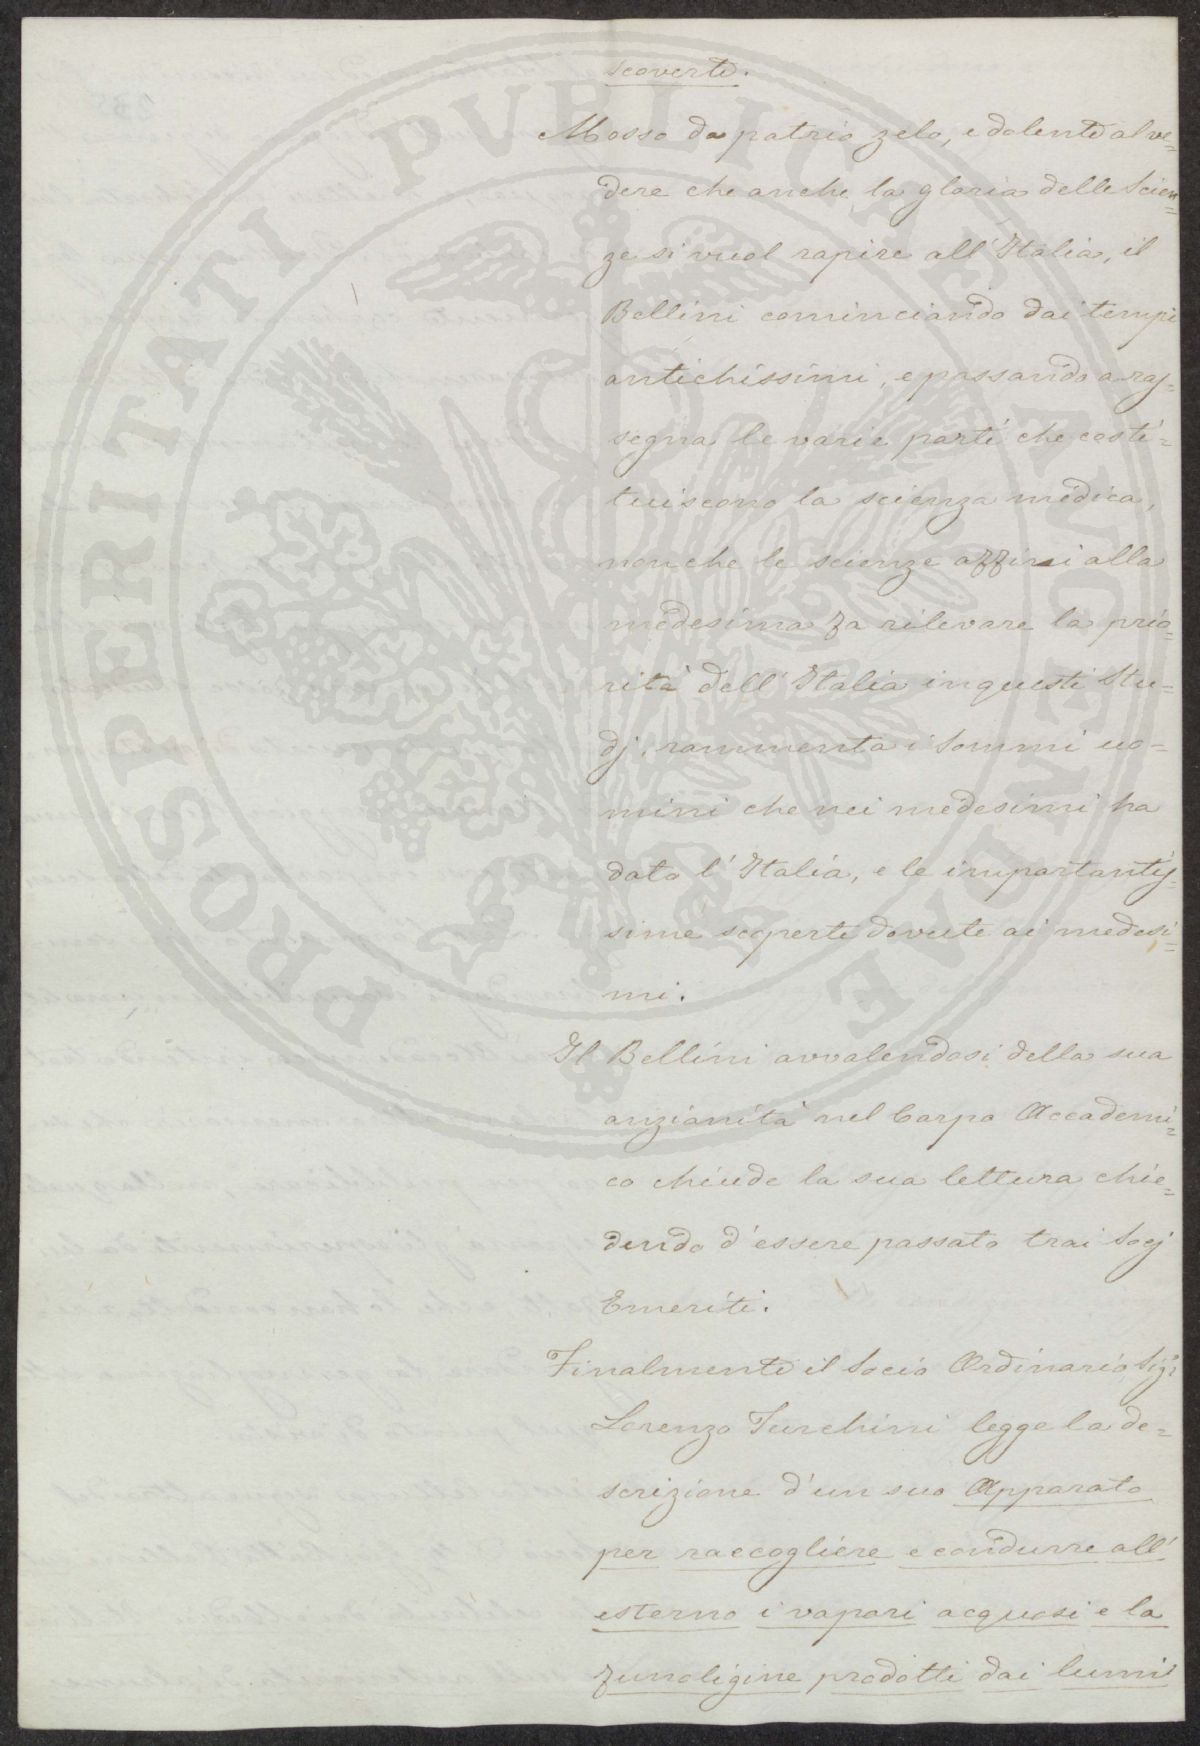 scoverte.
Mosso da patrio zelo, e dolente al ve=
dere che anche la gloria delle Scien=
ze si vuol rapire all'Italia, il
Bellini cominciando dai tempi
antichissimi, e passando a ras=
segna le varie parti che costi=
tuiscono la scienza medica,
nonche le scienze affini alla
medesima fa rilevare la prio=
rità dell'Italia in questi Stu=
dj, rammenta i Sommi uo=
mini che nei medesimi ha
dato l'Italia, e le importantis=
sime scoperte dovute ai medesi=
mi.
Il Bellini avvalendosi della sua
anzianità nel Corpo Accademi=
co chiude la sua lettura chie=
dendo d'essere passato trai Socj
Emeriti.
Finalmente il Socio Ordinario Sigr
Lorenzo Turchini legge la de=
scrizione d'un suo Apparato
per raccogliere e condurre all'
esterno i vapori acquosi e la
funoligine prodotti dai lumi
PROSPERITATI PUBLICAE AUGENDAE